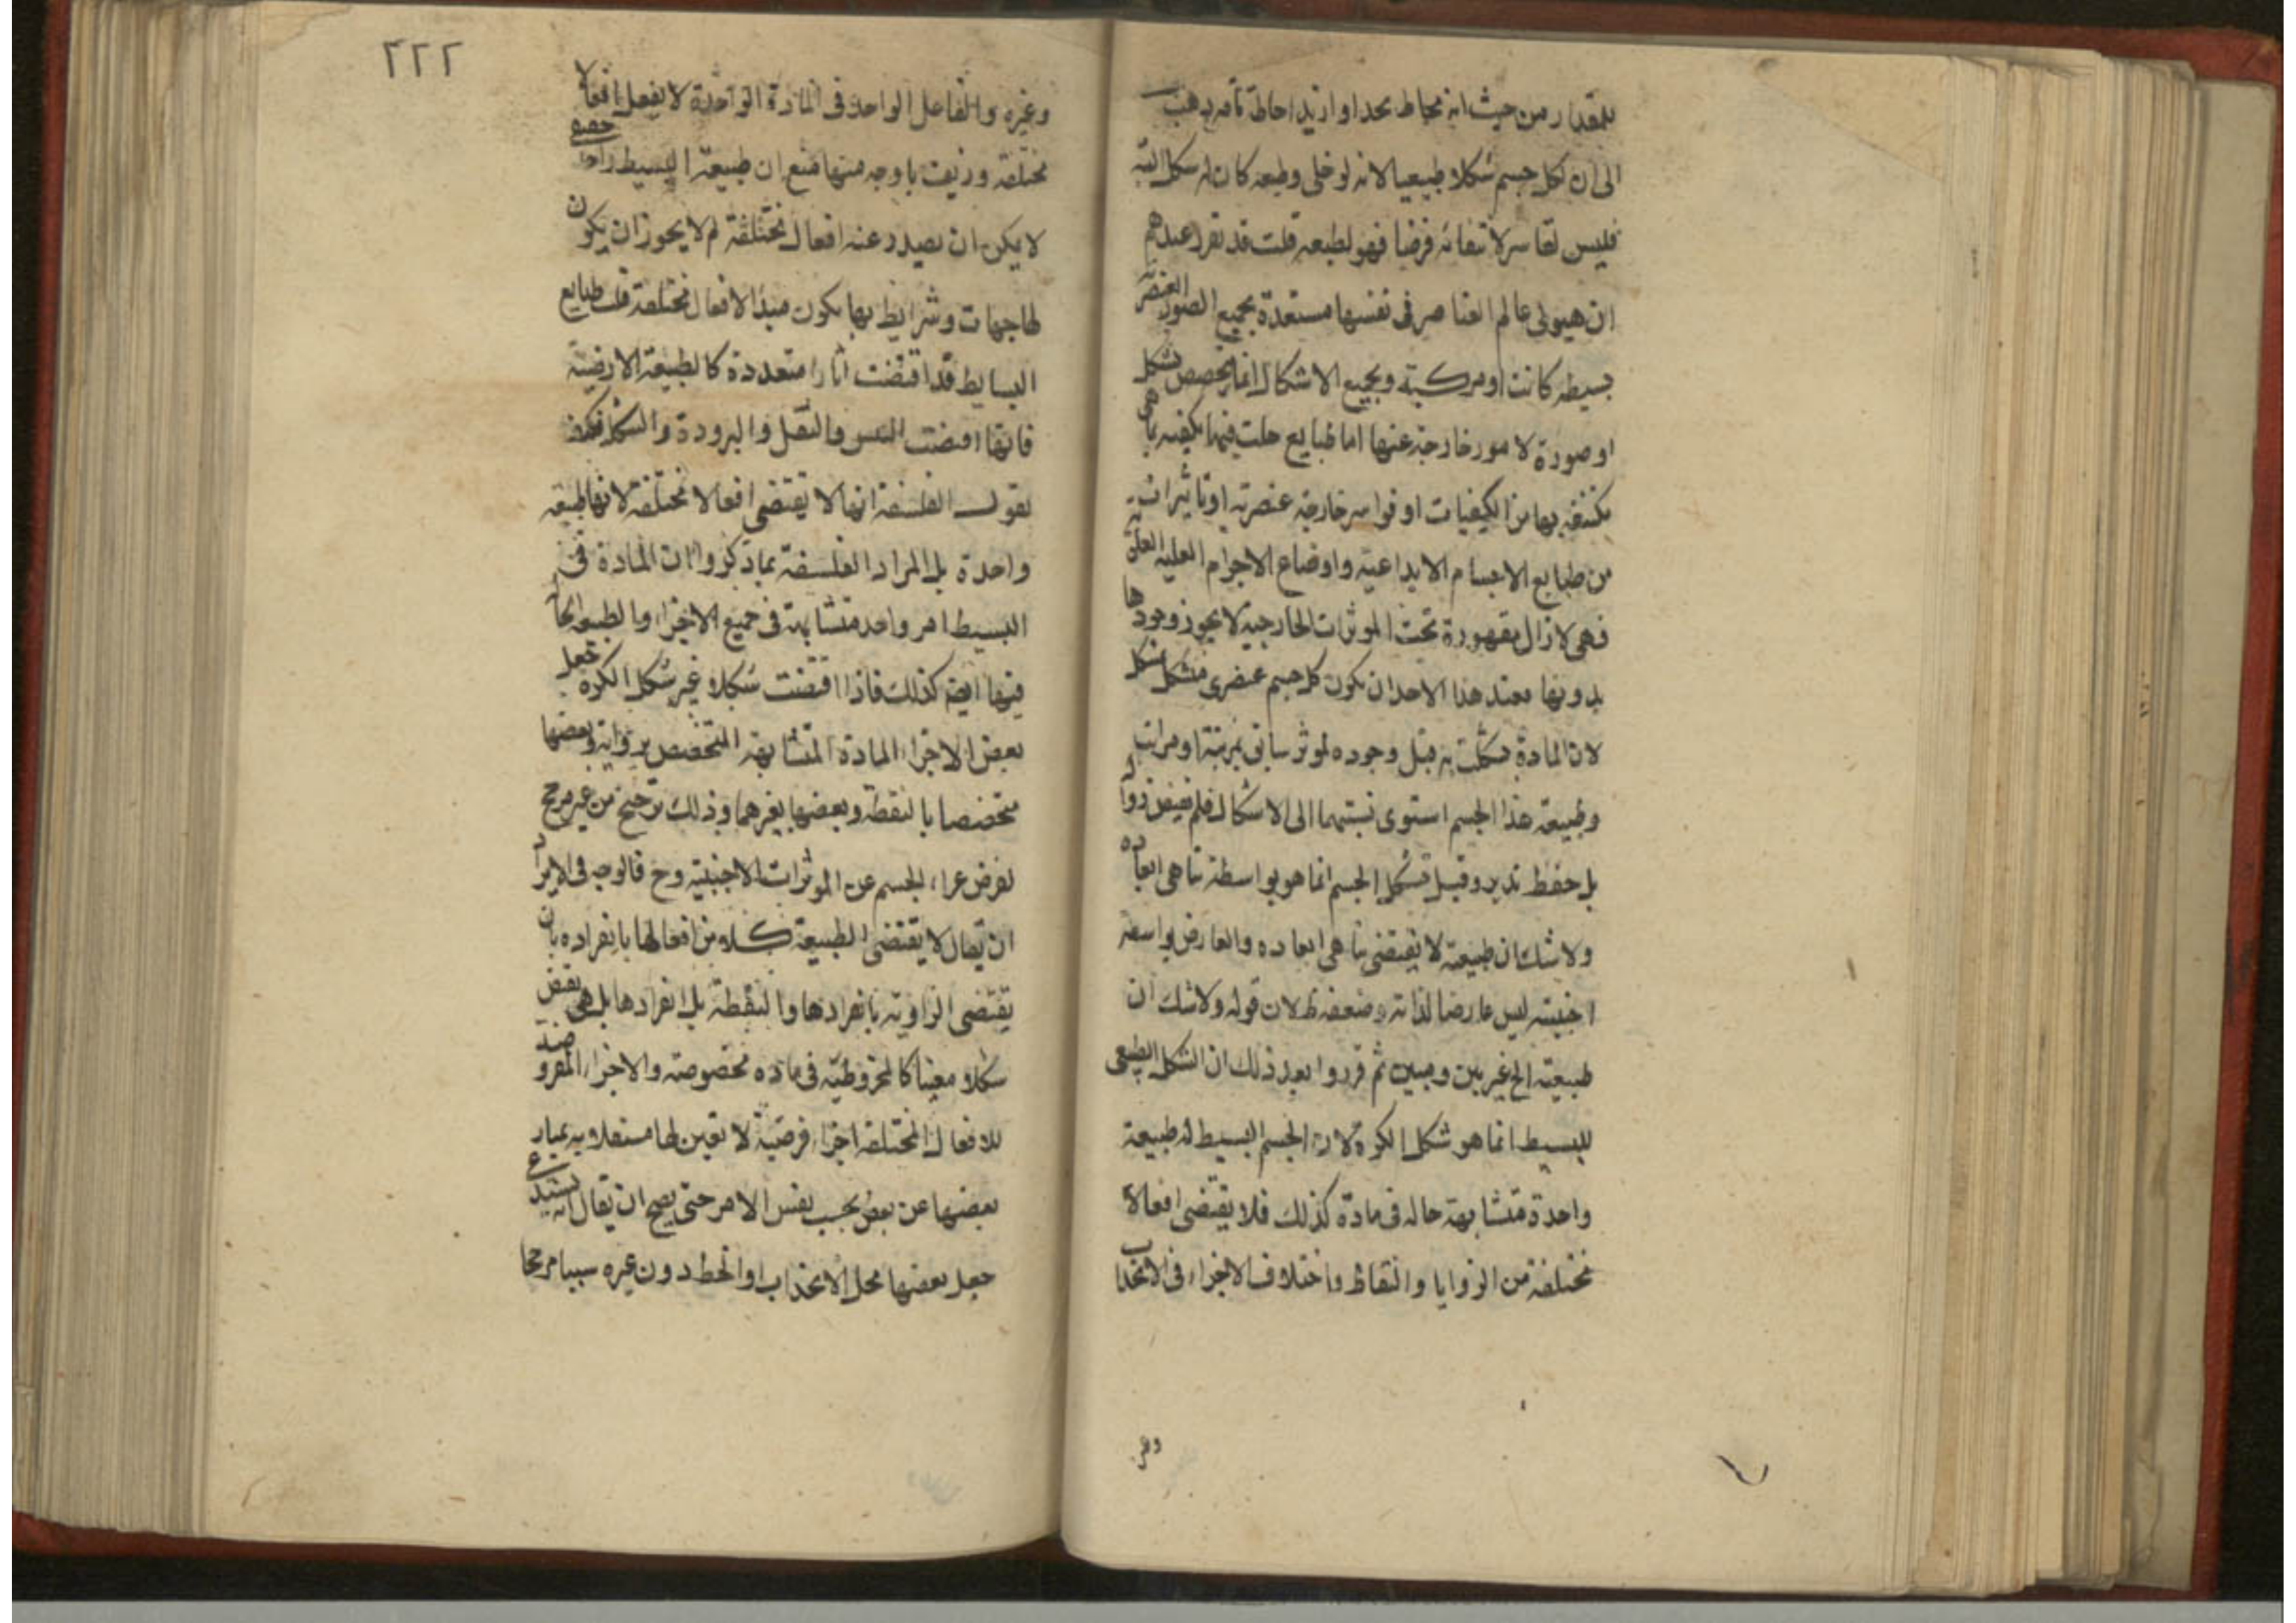 للمقدار من حيث انه محاط بحد او ازيد احاطة تامه يذهب
الى ان لكل جسم شكلا طبيعيا لانه لو خلى وطبعه كان له شكل البته
فليس لقاسر لانتفائه فرضا فهو لطبعه قلت قد تقرر عندهم
ان هيولى عالم العناصر فى نفسها مستعدة بجميع الصور العنصرية
بسيطه كانت او مركبة وبجميع الاشكال انما يخصص بشكل
او صورة لامور خارجة عنها اما طبايع حلت فيها
مكتنفة بها من الكيفيات او قواسر خارجة عنصرية او تاثيرات
من طبايع الاجسام الابداعية واوضاع الاجرام العلية
فهى لا زال مقهورة تحت الموثرات الخارجية لا يجوز وجودها
بدونها فعند هذا لاحد ان يكون كل جسم عنصرى متشكل بشكل
لان المادة تشكلت به قبل وجوده لموثر سابق بمرتبة او مراتب
وطبيعة هذا الجسم استوى نسبتهما الى الاشكال فلم
بل حفظ تدير وقيل تشكل الجسم انما هو بواسطة تناهى ابعاده
ولا شك ان طبيعة لا يقتضى تناهى ابعاده والعارض بواسطه
اجنبيته ليس عارضا لذاته وضعفه ظ لان قوله ولا شك ان
طبيعته الخ غير بين ومبين ثم قرروا بعد ذلك ان الشكل الطبيعى
للبسيط انما هو شكل الكرة لان الجسم البسيط له طبيعة
واحدة متشابهة حاله فى مادة كذلك فلا يقتضى افعالا
مختلفة من الزوايا والنقاط واختلاف الاجزاء فى الانجذاب
وغيره
٢٢٢
وغيره والفاعل الواحد فى المادة الواحدة لا يفعل افعالا
مختلفة وزيف باوجه منها منع ان طبيعة البسيط واحدة حقيقة
لا يمكن ان يصدر عنه افعال مختلفة لم لا يجوز ان يكون
لها جهات وشرايط بها يكون مبدا لافعال مختلفة فان طبايع
البسايط قد اقتضت اثارا متعددة كالطبيعة الارضية
فانها اقتضت اليبس والثقل والبرودة والشكل فكيف
يقول الفلسفة انها لا يقتضى افعالا مختلفة لانها طبيعة
واحدة بل المراد الفلسفة بما ذكروا ان المادة فى
البسيط امر واحد متشابهة فى جميع الاجزاء والطبيعة الحالة
فيها ايضه كذلك فاذا اقتضت شكلا غير شكل الكرة جعل
بعض الاجزاء المادة المتشابهة المتخصص بزواية وبعضها
متخصصا بالنقطة وبعضها بغيرهما وذلك ترجيح من غير مرجح
لفرض عراء الجسم عن الموثرات الاجنبية وح فالوجه فى الايراد
ان يقال لا يقتضى الطبيعة كلا من افعالها بانفراده بان
يقتضى الزاوية بانفرادها والنقطة بل انفرادها بل هى يقتضى
شكلا معينا كالمخروطية فى ماده مخصوصة والاجزاء المفروضة
للافعال المختلفة اجزاء فرضية لا تعين لها مستقلا به يمتاز
بعضها عن بعض بحسب نفس الامر حتى يصح ان يقال انه يستدعى
جعل بعضها محل الانجذاب او الخط دون غيره سببا مرجحا